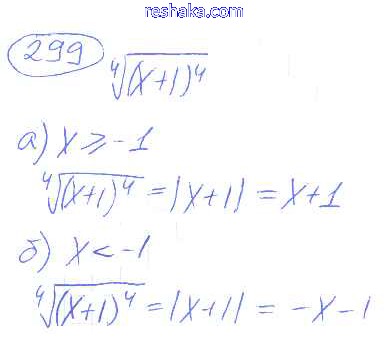 reshaka.com
299
⁴√(x+1)⁴
а) x ≥ -1
⁴√(x+1)⁴ = |x+1| = x+1
б) x < -1
⁴√(x+1)⁴ = |x+1| = -x-1